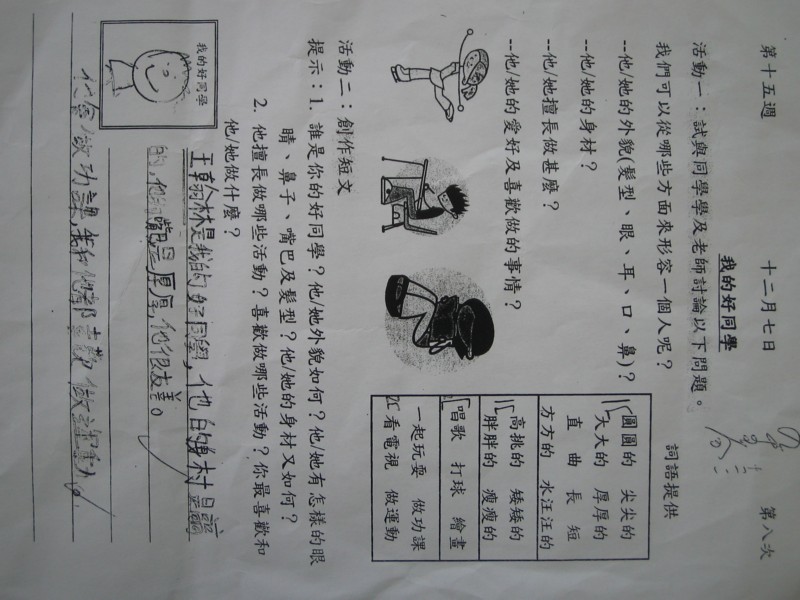 第十五週 十二月七日 第八次
我的好同學
活動一：試與同學學及老師討論以下問題。
我們可以從哪些方面來形容一個人呢？
--他/她的外貌(髮型、眼、耳、口、鼻)?
--他/她的身材？
--他/她擅長做甚麼？
--他/她的愛好及喜歡做的事情？
詞語提供
圓圓的 尖尖的
大大的 厚厚的
直 曲 長 短
方方的 水汪汪的
高挑的 矮矮的
胖胖的 瘦瘦的
唱歌 打球 繪畫
一起玩耍 做功課
看電視 做運動
活動二：創作短文
提示：1. 誰是你的好同學？他/她外貌如何？他/她有怎樣的眼
睛、鼻子、嘴巴及髮型？他/她的身材又如何？
2. 他擅長做哪些活動？喜歡做哪些活動？你最喜歡和
他/她做什麼？
我的好同學
王翰林是我的好同學，他的身材是
的，他 嘴巴是厚厚，他很友善。
他會做功課，我和他都喜歡做運動。